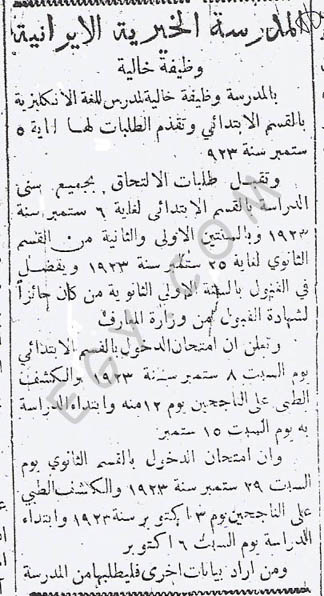 المدرسة الخيرية الايرانية
وظيفة خالية
بالمدرسة وظيفة خالية لمدرس للغة الانكليزية
بالقسم الابتدائي وتقدم الطلبات لها لغاية ٥
ستمبر سنة ٩٢٣
وتقبل طلبات الالتحاق بجميع سني
الدراسة بالقسم الابتدائي لغاية ٦ ستمبر سنة
١٩٢٣ وبالسنتين الاولى والثانية من القسم
الثانوي لغاية ٢٥ ستمبر سنة ١٩٢٣ ويفضل
في القبول بالسنة الاولى الثانوية من كان جائزاً
لشهادة القبول من وزارة المعارف
وتعلن ان امتحان الدخول بالقسم الابتدائي
يوم السبت ٨ ستمبر سنة ١٩٢٣ والكشف
الطبي على الناجحين يوم ١٢ منه وابتداء الدراسة
به يوم السبت ١٥ ستمبر
وان امتحان الدخول بالقسم الثانوي يوم
السبت ٢٩ ستمبر سنة ١٩٢٣ والكشف الطبي
على الناجحين يوم ٣ اكتوبر سنة ١٩٢٣ وابتداء
الدراسة يوم السبت ٦ اكتوبر
ومن اراد بيانات اخرى فليطلبها من المدرسة
EGY.COM